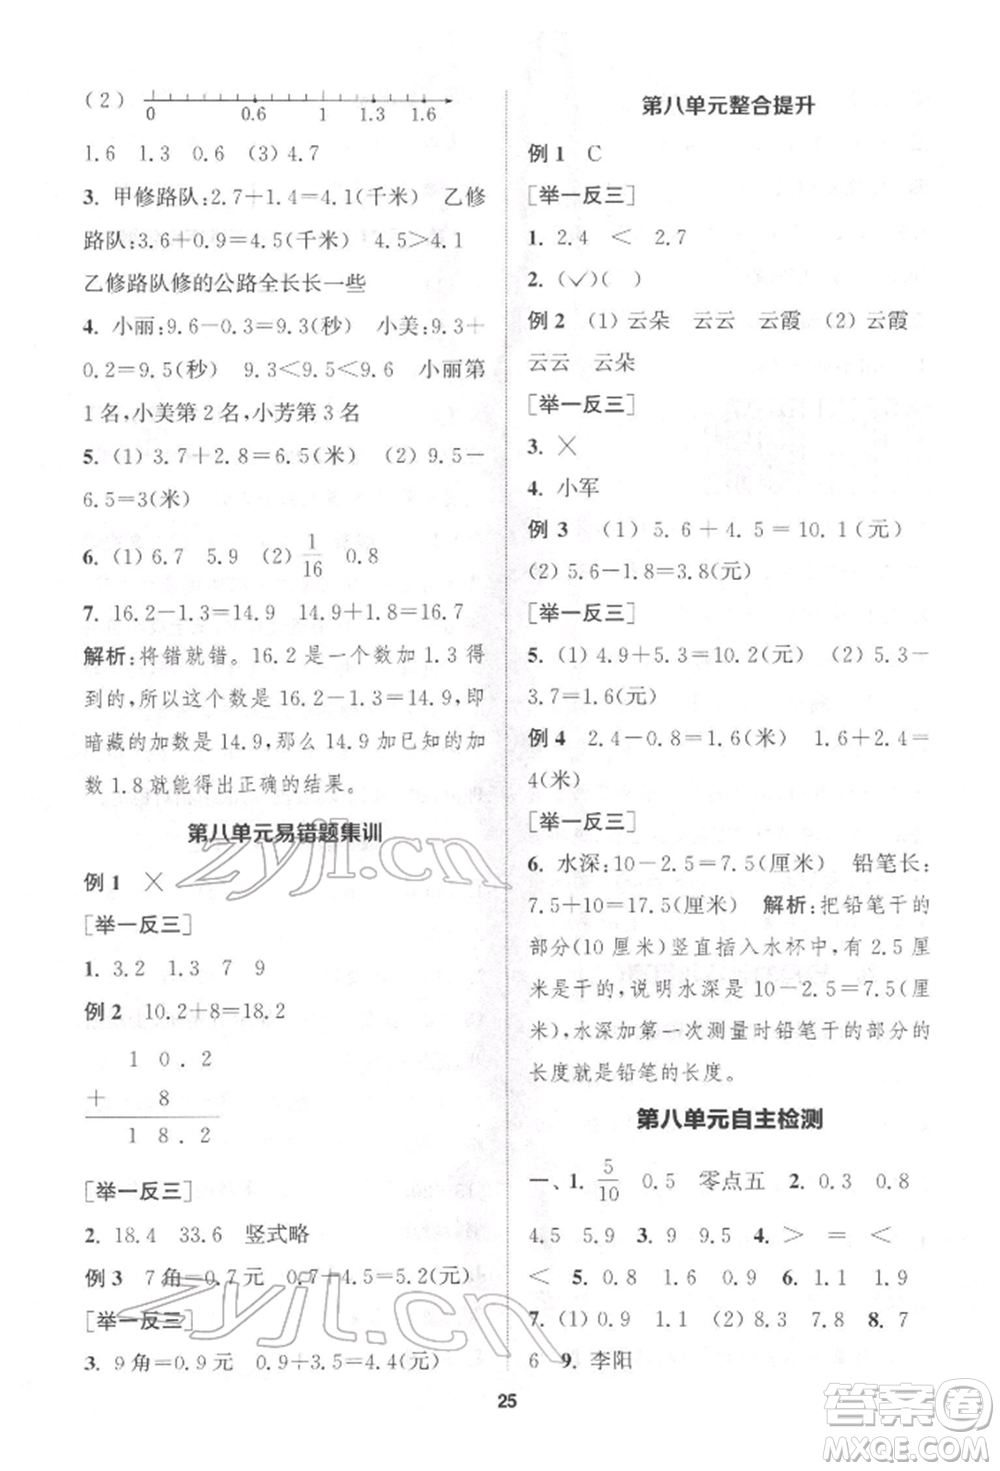 (2)
0 0.6 1 1.3 1.6
1.6 1.3 0.6 (3) 4.7
3. 甲修路队:2.7+1.4=4.1(千米) 乙修
路队:3.6+0.9=4.5(千米) 4.5>4.1
乙修路队修的公路全长长一些
4. 小丽:9.6-0.3=9.3(秒) 小美:9.3+
0.2=9.5(秒) 9.3<9.5<9.6 小丽第
1名,小美第2名,小芳第3名
5. (1) 3.7+2.8=6.5(米) (2) 9.5-
6.5=3(米)
6. (1) 6.7 5.9 (2) 1/16 0.8
7. 16.2-1.3=14.9 14.9+1.8=16.7
解析:将错就错。16.2是一个数加1.3得
到的,所以这个数是16.2-1.3=14.9,即
暗藏的加数是14.9,那么14.9加已知的加
数1.8就能得出正确的结果。
第八单元易错题集训
例1 ×
[举一反三]
1. 3.2 1.3 7 9
例2 10.2+8=18.2
10.2
+ 8
18.2
[举一反三]
2. 18.4 33.6 竖式略
例3 7角=0.7元 0.7+4.5=5.2(元)
[举一反三]
3. 9角=0.9元 0.9+3.5=4.4(元)
第八单元整合提升
例1 C
[举一反三]
1. 2.4 < 2.7
2. (✓)( )
例2 (1) 云朵 云云 云霞 (2) 云霞
云云 云朵
[举一反三]
3. ×
4. 小军
例3 (1) 5.6+4.5=10.1(元)
(2) 5.6-1.8=3.8(元)
[举一反三]
5. (1) 4.9+5.3=10.2(元) (2) 5.3-
3.7=1.6(元)
例4 2.4-0.8=1.6(米) 1.6+2.4=
4(米)
[举一反三]
6. 水深:10-2.5=7.5(厘米) 铅笔长:
7.5+10=17.5(厘米) 解析:把铅笔干的
部分(10厘米)竖直插入水杯中,有2.5厘
米是干的,说明水深是10-2.5=7.5(厘
米),水深加第一次测量时铅笔干的部分的
长度就是铅笔的长度。
第八单元自主检测
一、1. 5/10 0.5 零点五 2. 0.3 0.8
4.5 5.9 3. 9.9 4. > = <
< 5. 0.8 1.6 2.9 6. 1.1 1.9
7. (1) 0.9 1.1 (2) 8.3 7.8 8. 7
6 9. 李阳
25
zyjl.cn
zyjl.cn
答案卷
MXQE.COM